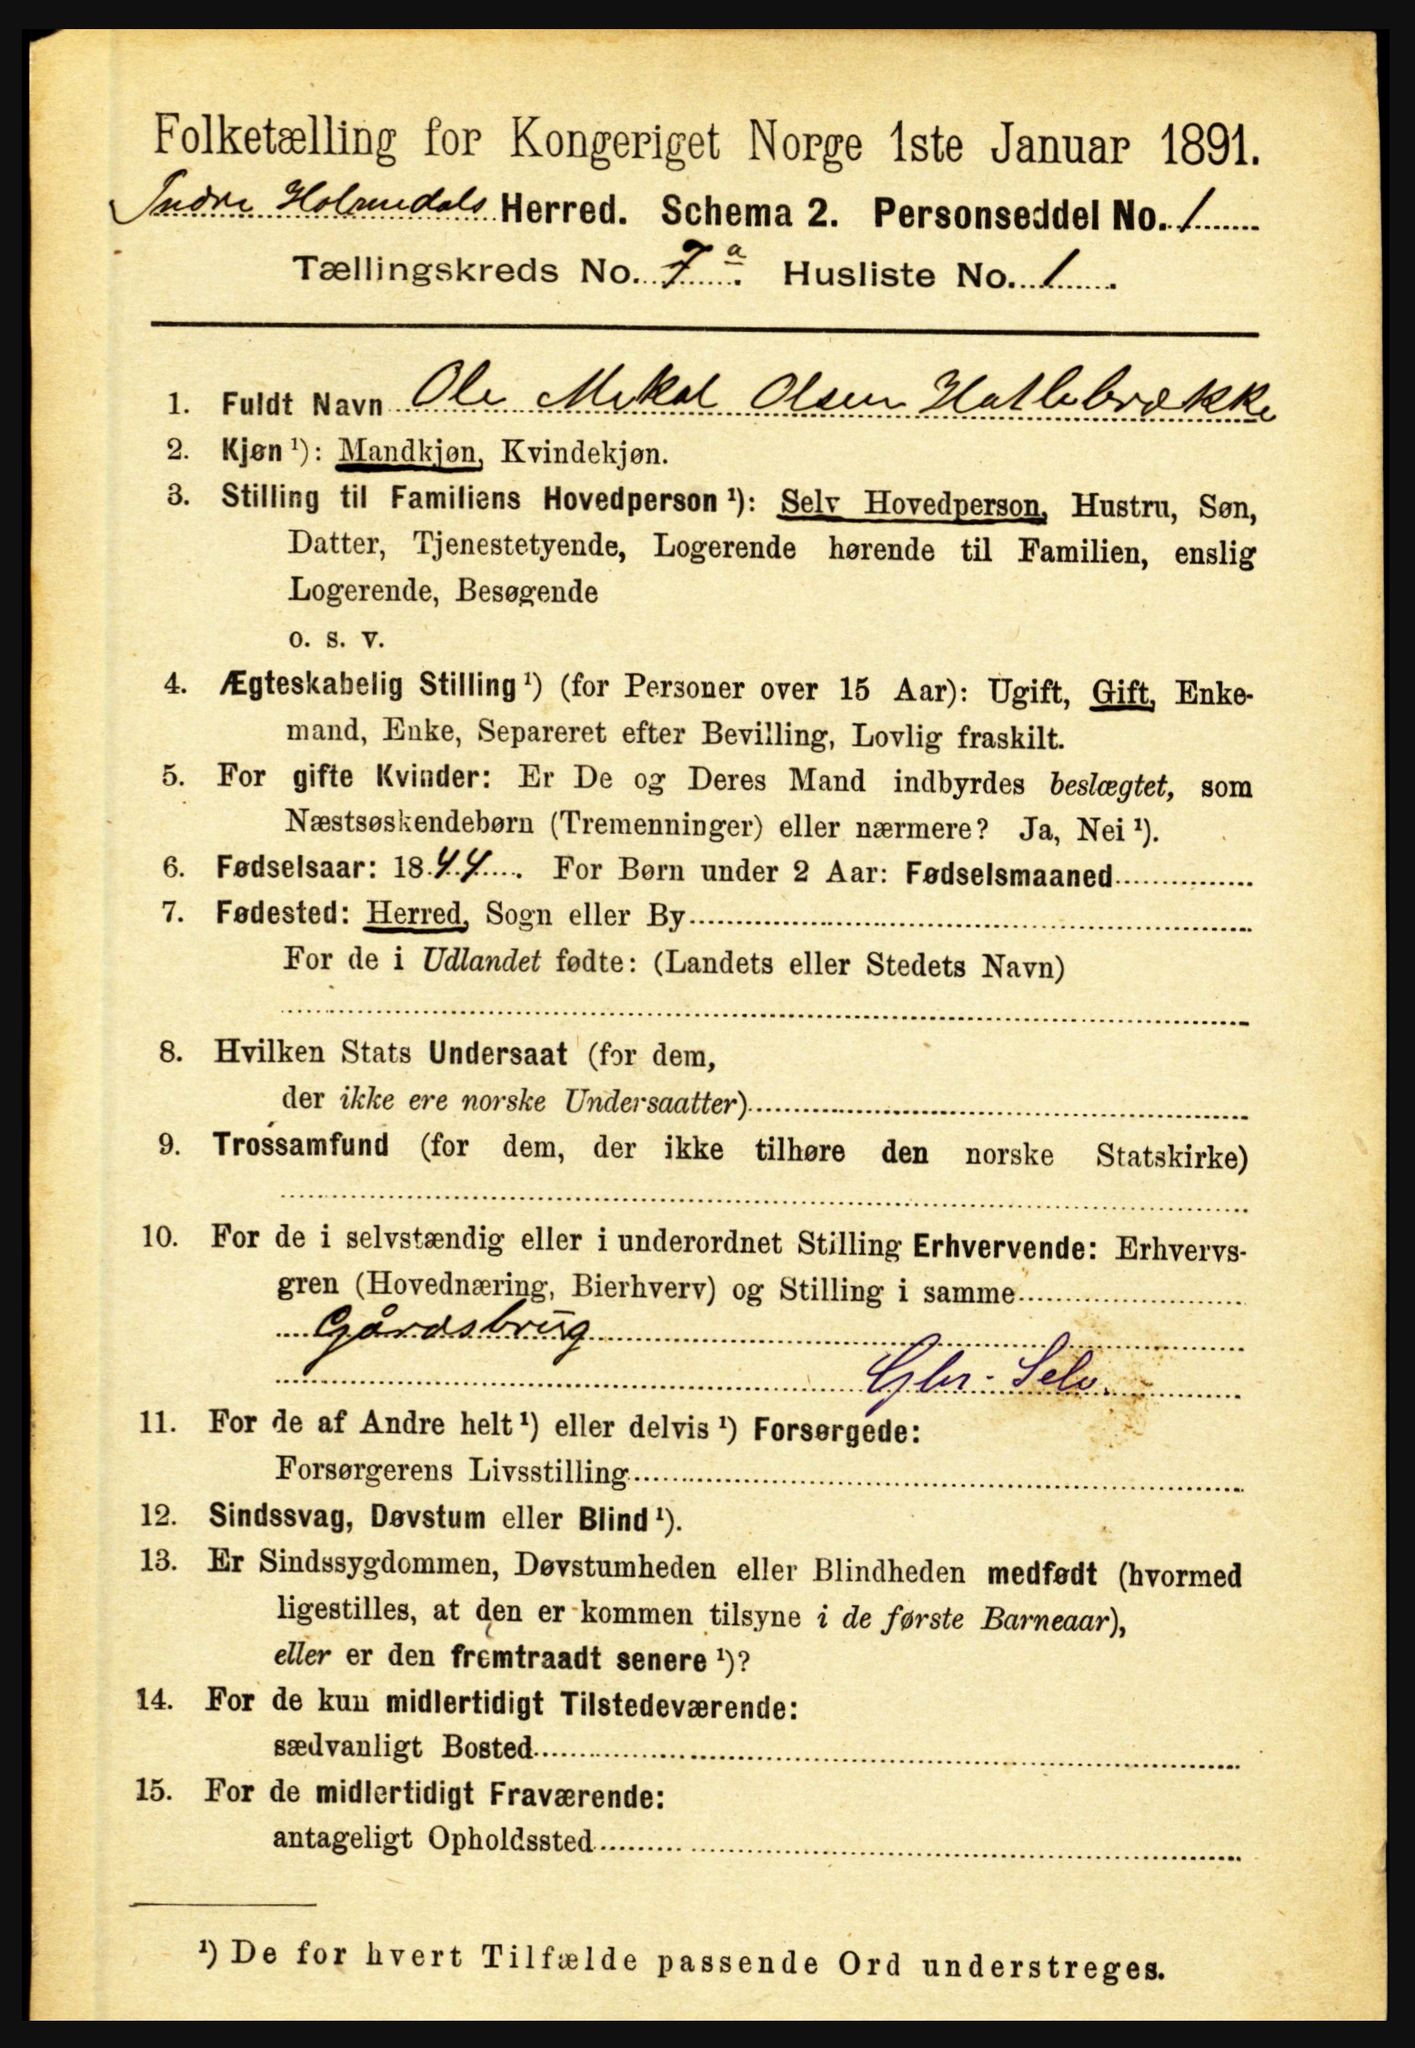 Folketælling for Kongeriget Norge 1ste Januar 1891.
Indre Holmedals Herred. Schema 2. Personseddel No. 1
Tællingskreds No. 7a. Husliste No. 1.
1. Fuldt Navn Ole Mikal Olsen Hatlebrække
2. Kjøn ¹): Mandkjøn, Kvindekjøn.
3. Stilling til Familiens Hovedperson ¹): Selv Hovedperson, Hustru, Søn,
Datter, Tjenestetyende, Logerende hørende til Familien, enslig
Logerende, Besøgende
o. s. v.
4. Ægteskabelig Stilling ¹) (for Personer over 15 Aar): Ugift, Gift, Enke-
mand, Enke, Separeret efter Bevilling, Lovlig fraskilt.
5. For gifte Kvinder: Er De og Deres Mand indbyrdes beslægtet, som
Næstsøskendebørn (Tremenninger) eller nærmere? Ja, Nei ¹).
6. Fødselsaar: 1844. For Børn under 2 Aar: Fødselsmaaned
7. Fødested: Herred, Sogn eller By
For de i Udlandet fødte: (Landets eller Stedets Navn)
8. Hvilken Stats Undersaat (for dem,
der ikke ere norske Undersaatter)
9. Trossamfund (for dem, der ikke tilhøre den norske Statskirke)
10. For de i selvstændig eller i underordnet Stilling Erhvervende: Erhvervs-
gren (Hovednæring, Bierhverv) og Stilling i samme
Gårdsbrug
Gbr. Selv.
11. For de af Andre helt ¹) eller delvis ¹) Forsørgede:
Forsørgerens Livsstilling
12. Sindssvag, Døvstum eller Blind ¹).
13. Er Sindssygdommen, Døvstumheden eller Blindheden medfødt (hvormed
ligestilles, at den er kommen tilsyne i de første Barneaar),
eller er den fremtraadt senere ¹)?
14. For de kun midlertidigt Tilstedeværende:
sædvanligt Bosted
15. For de midlertidigt Fraværende:
antageligt Opholdssted
¹) De for hvert Tilfælde passende Ord understreges.